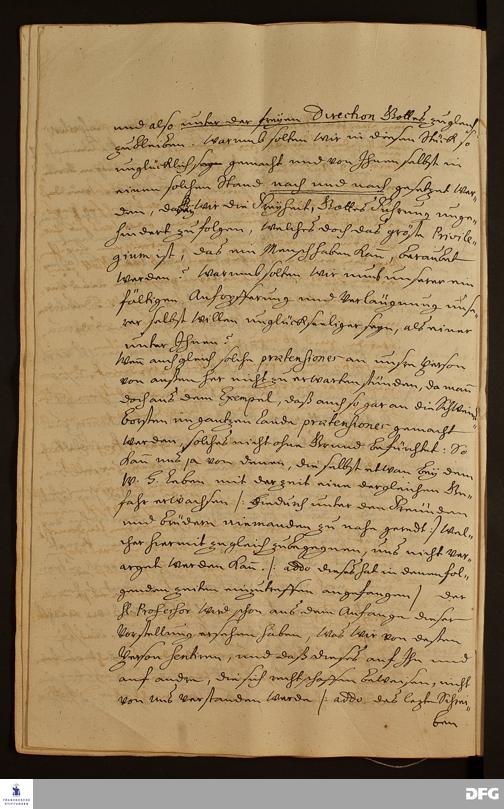 und also unter der freyen Direction Gottes zugleich
zu bleiben. Warumb solten wir in diesem Stück so
unglücklich gemacht und von Ihnen selbst in
einen solchen Stand nach und nach gesetzet wer-
den, da wir die Freyheit, Gottes Führung unge-
hindert zu folgen, welches doch das gröste Privile-
gium ist, das ein Mensch haben kan, beraubet
werden? Warumb solten wir umb unserer ein-
fältigen Aufopfferung und Verläugnung unse-
rer selbst willen unglückseeliger seyn, als einer
unter Ihnen?
Wenn auch gleich solche prætensiones an unsre Person
von außen her nicht zu erwarten stünden, da man
doch aus dem Exempel, daß auch so gar an die Schweins-
borsten im gantzen Lande prætensiones gemacht
werden, solches nicht ohne Grund befürchtet: So
kan uns ja von denen, die selbst etwan bey dem
W. H. leben mit der Zeit eine dergleichen Ge-
fahr erwachsen /: hiedurch unter den Freunden
und Brüdern niemanden zu nahe geredt :/ wel-
cher hiermit zugleich zubegegnen, uns nicht ver-
arget werden kan. /: addo dieses hat in denen fol-
genden Zeiten einzutreffen angefangen / der
H. Professor wird schon aus dem Anfange dieser
Vorstellung ersehen haben, was wir von deßen
Person sentiren, und daß dieses auf Ihn und
auf andre, die sich rechtschaffen beweisen, nicht
von uns verstanden werde /: addo das letzte Schrei-
ben
FRANCKESCHE
STIFTUNGEN
DFG